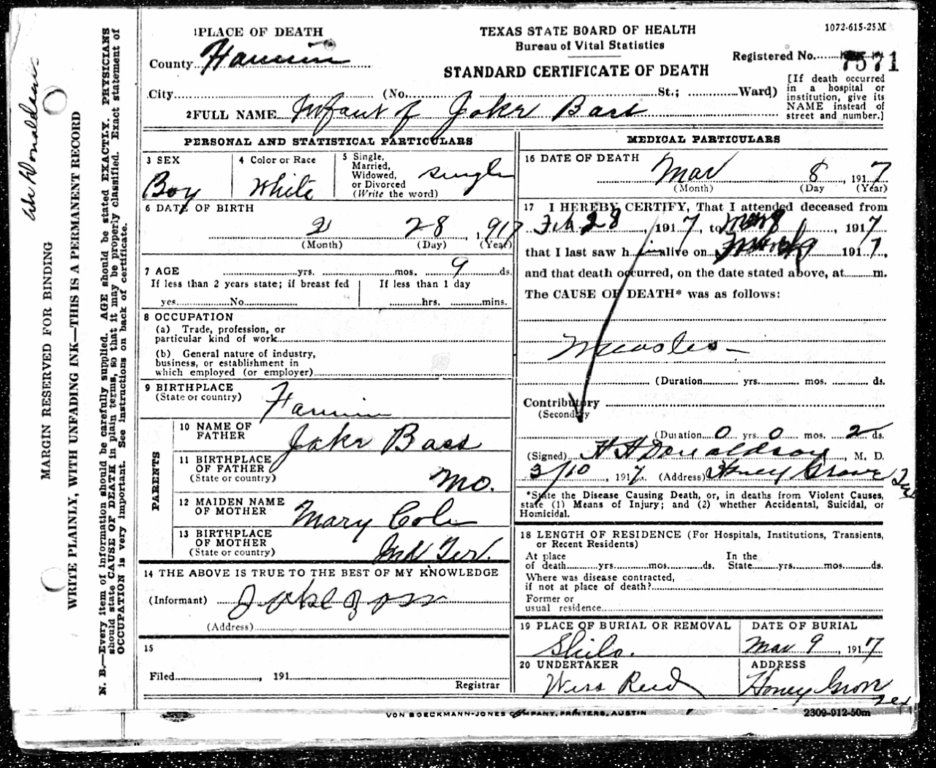 1072-615-25M
1PLACE OF DEATH
TEXAS STATE BOARD OF HEALTH
Bureau of Vital Statistics
STANDARD CERTIFICATE OF DEATH
County Fannin
Registered No. 7571
City (No. St.; Ward)
[If death occurred in a hospital or institution, give its NAME instead of street and number.]
2FULL NAME Infant of Jake Bass
PERSONAL AND STATISTICAL PARTICULARS
3 SEX
Boy
4 Color or Race
White
5 Single, Married, Widowed, or Divorced (Write the word)
single
6 DATE OF BIRTH
2 28, 1917
(Month) (Day) (Year)
7 AGE yrs. mos. 9 ds.
If less than 2 years state; if breast fed
yes No
If less than 1 day
hrs. mins.
8 OCCUPATION
(a) Trade, profession, or
particular kind of work
(b) General nature of industry,
business, or establishment in
which employed (or employer)
9 BIRTHPLACE
(State or country)
Fannin
PARENTS
10 NAME OF FATHER
Jake Bass
11 BIRTHPLACE OF FATHER
(State or country)
Mo.
12 MAIDEN NAME OF MOTHER
Mary Cole
13 BIRTHPLACE OF MOTHER
(State or country)
Ind Ter.
14 THE ABOVE IS TRUE TO THE BEST OF MY KNOWLEDGE
(Informant) Jake Bass
(Address)
15
Filed , 191
Registrar
MEDICAL PARTICULARS
16 DATE OF DEATH
Mar 8 1917
(Month) (Day) (Year)
17 I HEREBY CERTIFY, That I attended deceased from
Feb 28, 1917, to Mar 8, 1917
that I last saw h im alive on 1917,
and that death occurred, on the date stated above, at m.
The CAUSE OF DEATH* was as follows:
Measles-
(Duration yrs. mos. ds.
Contributory
(Secondary
(Duration 0 yrs 0 mos. 2 ds.
(Signed) H H Donaldson, M. D.
3/10, 1917. (Address) Honey Grove Tex
*State the Disease Causing Death, or, in deaths from Violent Causes,
state (1) Means of Injury; and (2) whether Accidental, Suicidal, or
Homicidal.
18 LENGTH OF RESIDENCE (For Hospitals, Institutions, Transients,
or Recent Residents)
At place of death yrs. mos. ds.
In the State yrs. mos. ds.
Where was disease contracted,
if not at place of death?
Former or
usual residence
19 PLACE OF BURIAL OR REMOVAL
Shilo.
DATE OF BURIAL
Mar 9, 1917
20 UNDERTAKER
Wise Reed
ADDRESS
Honey Grove Tex
VON BOECKMANN-JONES COMPANY, PRINTERS, AUSTIN
2309-912-50m
MARGIN RESERVED FOR BINDING
WRITE PLAINLY, WITH UNFADING INK—THIS IS A PERMANENT RECORD
N. B.—Every item of information should be carefully supplied. AGE should be stated EXACTLY. PHYSICIANS
should state CAUSE OF DEATH in plain terms, so that it may be properly classified. Exact statement of
OCCUPATION is very important. See instructions on back of certificate.
Donaldson